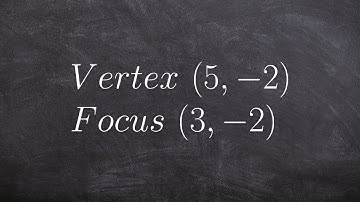 Vertex (5, −2)
Focus (3, −2)